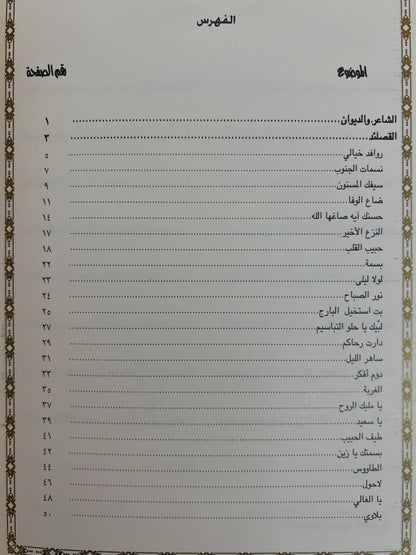 الفهرس
الموضوع رقم الصفحة
الشاعر والديوان ١
القصائد ٣
روافد خيالي ٥
نسمات الجنوب ٧
سيفك المسنون ٩
ضاع الوفا ١١
حسنك آيه صاغها الله ١٤
النزع الأخير ١٧
حبيب القلب ١٨
بسمة ٢٢
لولا ليلى ٢٣
نور الصباح ٢٤
بت استخيل البارج ٢٥
لبّيك يا حلو التباسيم ٢٧
دارت رحاكم ٢٩
ساهر الليل ٣١
دوم أفكر ٣٣
الغربة ٣٥
يا مليك الروح ٣٧
يا سعيد ٣٩
طيف الحبيب ٤١
بسمتك يا زين ٤٢
الطاووس ٤٤
لاحول ٤٦
يا الغالي ٤٨
بلاوي ٥٠